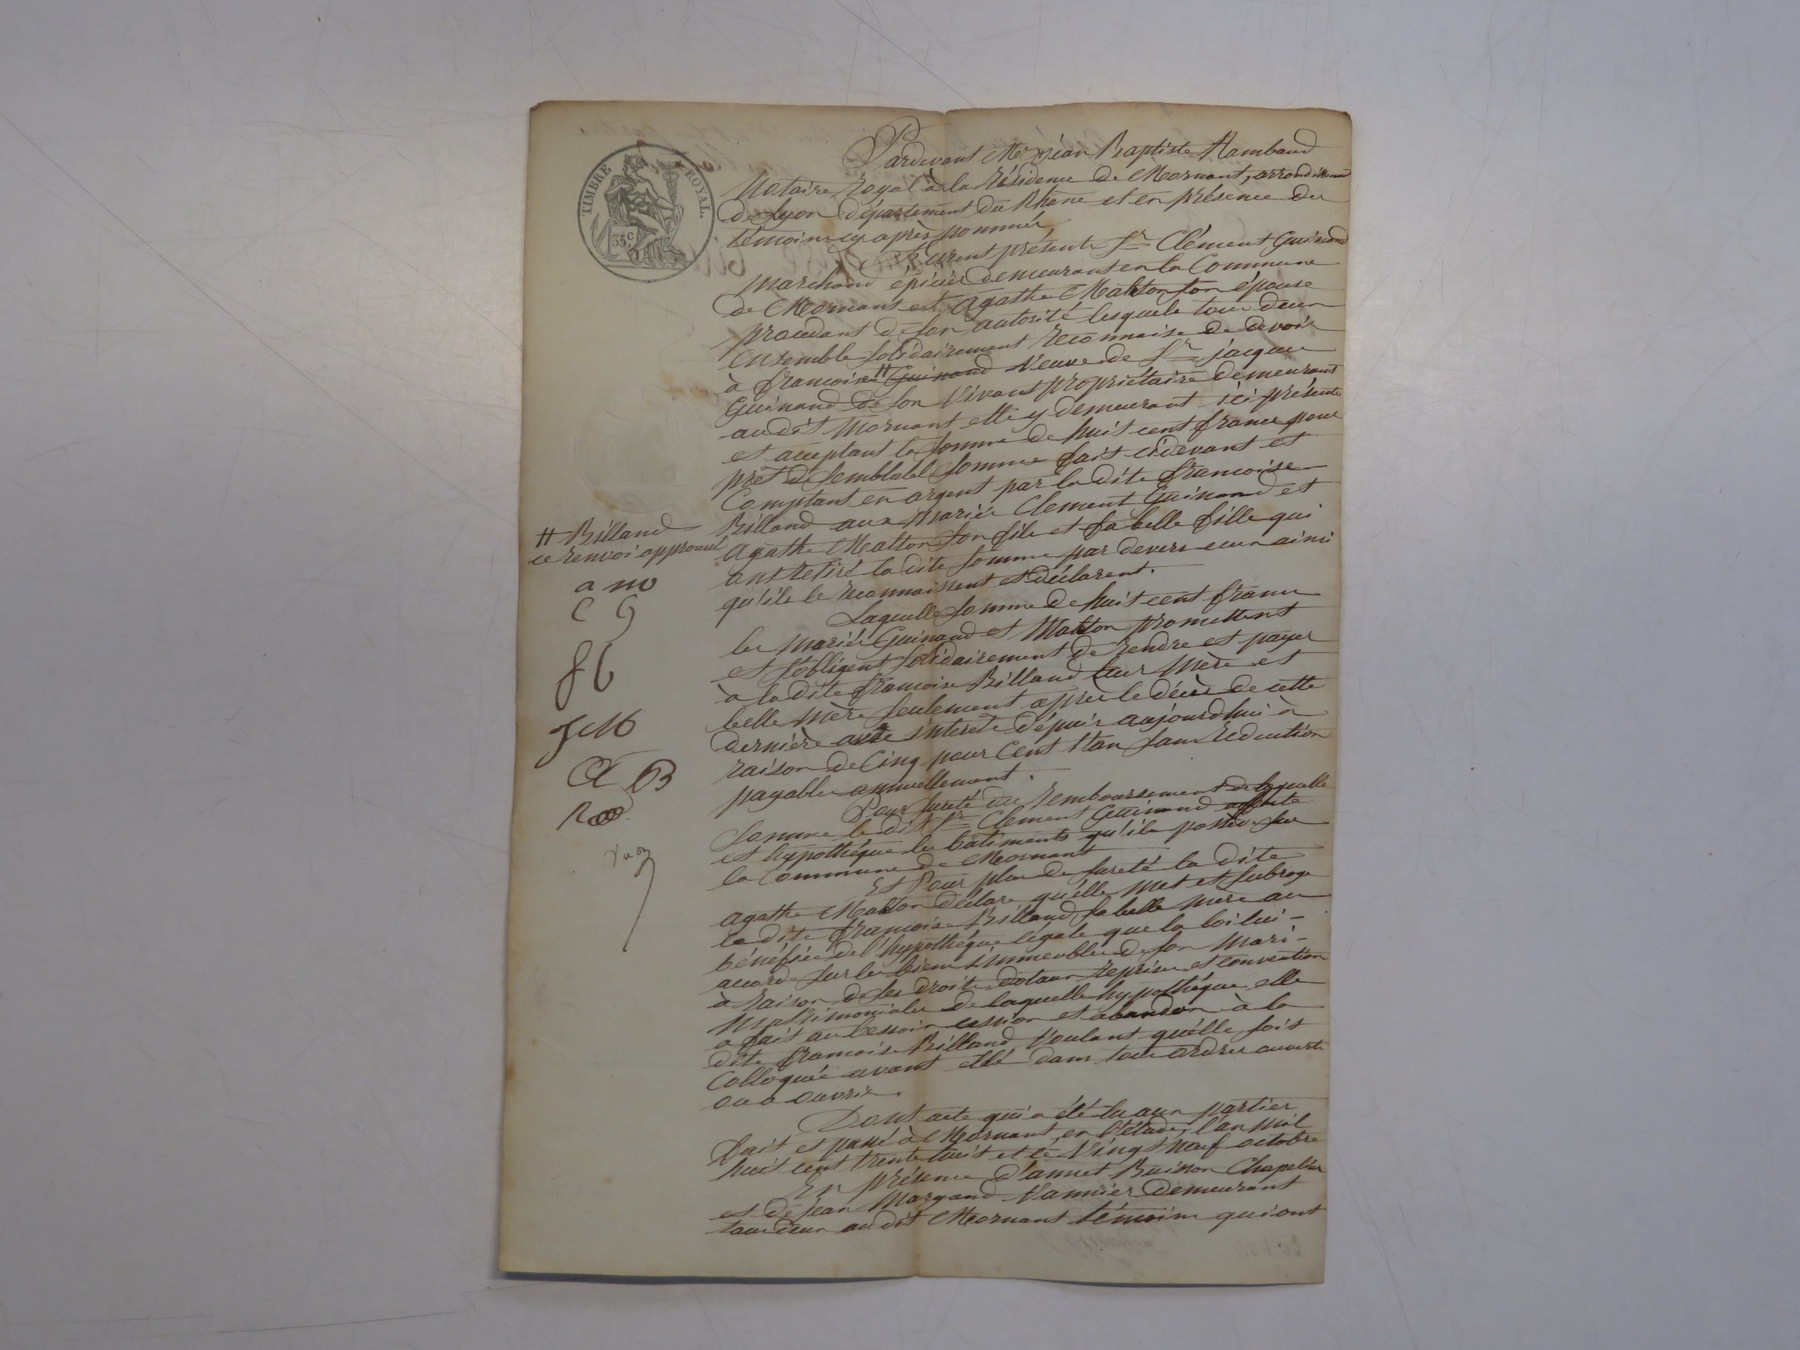 TIMBRE ROYAL.
35c
Pardevant Me Jean Baptiste Rambaud
Notaire Royal à la Résidence de Mornant, arrondissement
de Lyon département du Rhône et en présence des
témoins cy après nommés
Furent présents Sr Clément Guinand
Marchand épicier demeurant en la Commune
de Mornant et Agathe Matton son épouse
procédant de son autorité lesquels tous deux
ensemble solidairement reconnaise de devoir
à françoise # Guinand Veuve de Sr jacques
Guinand de son Vivant propriétaire demeurant
audit Mornant elle y demeurant ici présente
et acceptant la somme de huit cent francs pour
prêt de semblable somme fait cidevant et
Comptant en argent par la dite françoise
Billand aux mariés Clément Guinand et
Agathe Matton son fils et sa belle fille qui
ont retiré la dite somme par devers eux ainsi
qu'ils le reconnaissent et déclarent.
# Billand
ce renvoi approuvé
a m
C G
f b
J M
A B
Laquelle somme de huit cent francs
les mariés Guinand et Matton promettent
et s'obligent solidairement de rendre et payer
à la dite françoise Billand leur mère et
belle mère seulement après le décès de cette
dernière avec intérêts dépuis aujourdhui à
raison de Cinq pour Cent l'an sans Réduction
payables annuellement.
Pour sureté du remboursement de laquelle
somme le dit Sr Clément Guinand affecte
et hypothèque les bâtiments qu'ils possède sur
la Commune de Mornant
Et Pour plus de sureté la dite
Agathe Matton déclare qu'elle met et subroge
la dite françoise Billand sa belle mère au
bénéfice de l'hypothèque légale que la loi lui-
accorde sur les biens immeubles de son mari-
à raison de ses droits dotaux reprises et convention
Matrimoniales de laquelle hypothèque elle
a fait au besoin cession et abandon à la
dite françoise Billand Voulant quélle soit
Colloquée avant elle dans tous ordres ouverts
ou a ouvrir.
Dont acte qui a été lu aux parties
fait et passé à Mornant en l'étude, l'an mil
huit cent trente huit et le Vingt Neuf octobre
En présence d'annet Buisson Chapelier
et de jean Margand Vannier demeurant
tous deux audit Mornant témoins qui ont